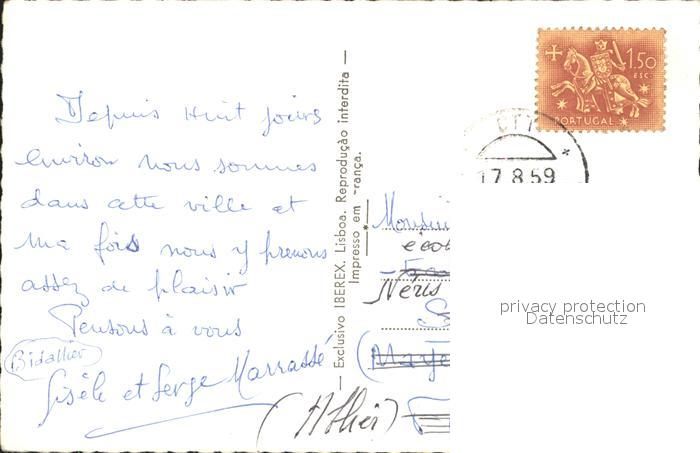 Depuis Huit jours
environ nous sommes
dans cette ville et
ma fois nous y prenons
assez de plaisir
Pensons à vous
Bidallier
Gisèle et Serge Marrassé
— Exclusivo IBEREX. Lisboa. Reprodução interdita —
Impresso em França.
1$50
ESC.
PORTUGAL
CTT
17.8.59
Monsieur
école
Néris
(Allier)
privacy protection
Datenschutz